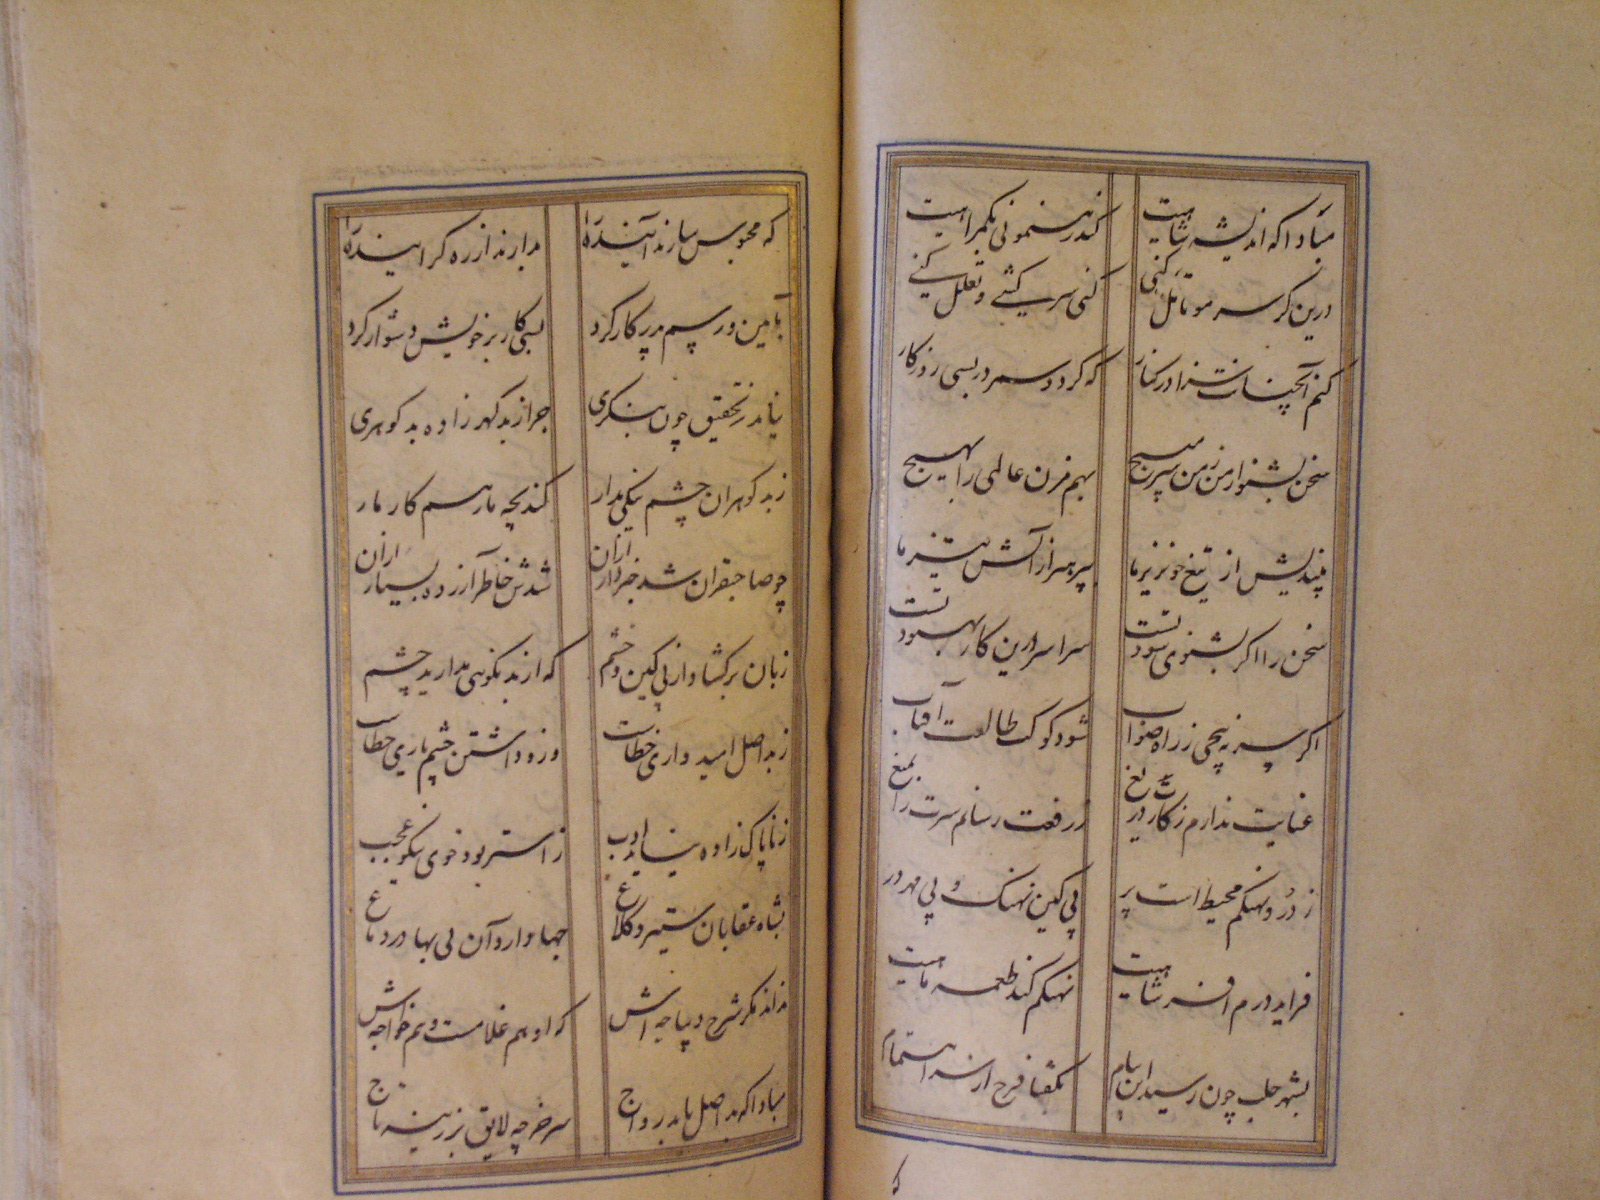 مبادا که اندیشه شاهیت کند رهنمونی بگمراهیت
درین کر سر مو تامل کنی کنی سرکشی و تعلل کنی
کنم آنچنانت سزا در کنار که گردد سمر در بسی روزکار
سخن بشنو از من ز من سر مپیچ بهم مزن عالمی را بهیچ
بیندیش از تیغ خونریز ما بپرهیز از آتش تیز ما
سخن را اگر بشنوی سود تست سراسر درین کار بهبود تست
اگر سر نپیچی ز راه صواب شود کوکب طالعت آفتاب
عنایت ندارم ز کارت دریغ ز رفعت رسانم سرت را بمیغ
ز در و نهنگم محیط است پر پی کین نهنگ و پی مهر در
فزاید درم افسر شاهیت نهنگم کند طعمه ماهیت
بشهر حلب چون رسید این پیام بگفتا فرح از سر اهتمام
که
که محبوس سازند آینده را مدارند از ره گراینده را
بآیین و رسم پدر کار کرد بسی کار بر خویش دشوار کرد
نیاید ز تحقیق چون بنگری جز از بد گهر زاده بد گوهری
ز بد گوهران چشم نیکی مدار کند بچه مار هم کار مار
چو صاحبقران شد خبردار ازان شدش خاطر آزرده بسیار ازان
زبان برگشاد از پی کین و خشم که از بد نکوهی مدارید چشم
ز بد اصل امیدواری خطاست وزو داشتن چشم یاری خطاست
ز ناپاک زاده نیاید ادب ز استر بود خوی نیکو عجب
بشاه عقابان ستیزد کلاغ جها دارد آن بی بها در دماغ
نداند مگر شرح دیباجه‌اش که او هم غلامست و هم خواجه‌اش
مبادا که بد اصل یابد رواج سر خر چه لایق بزرینه تاج